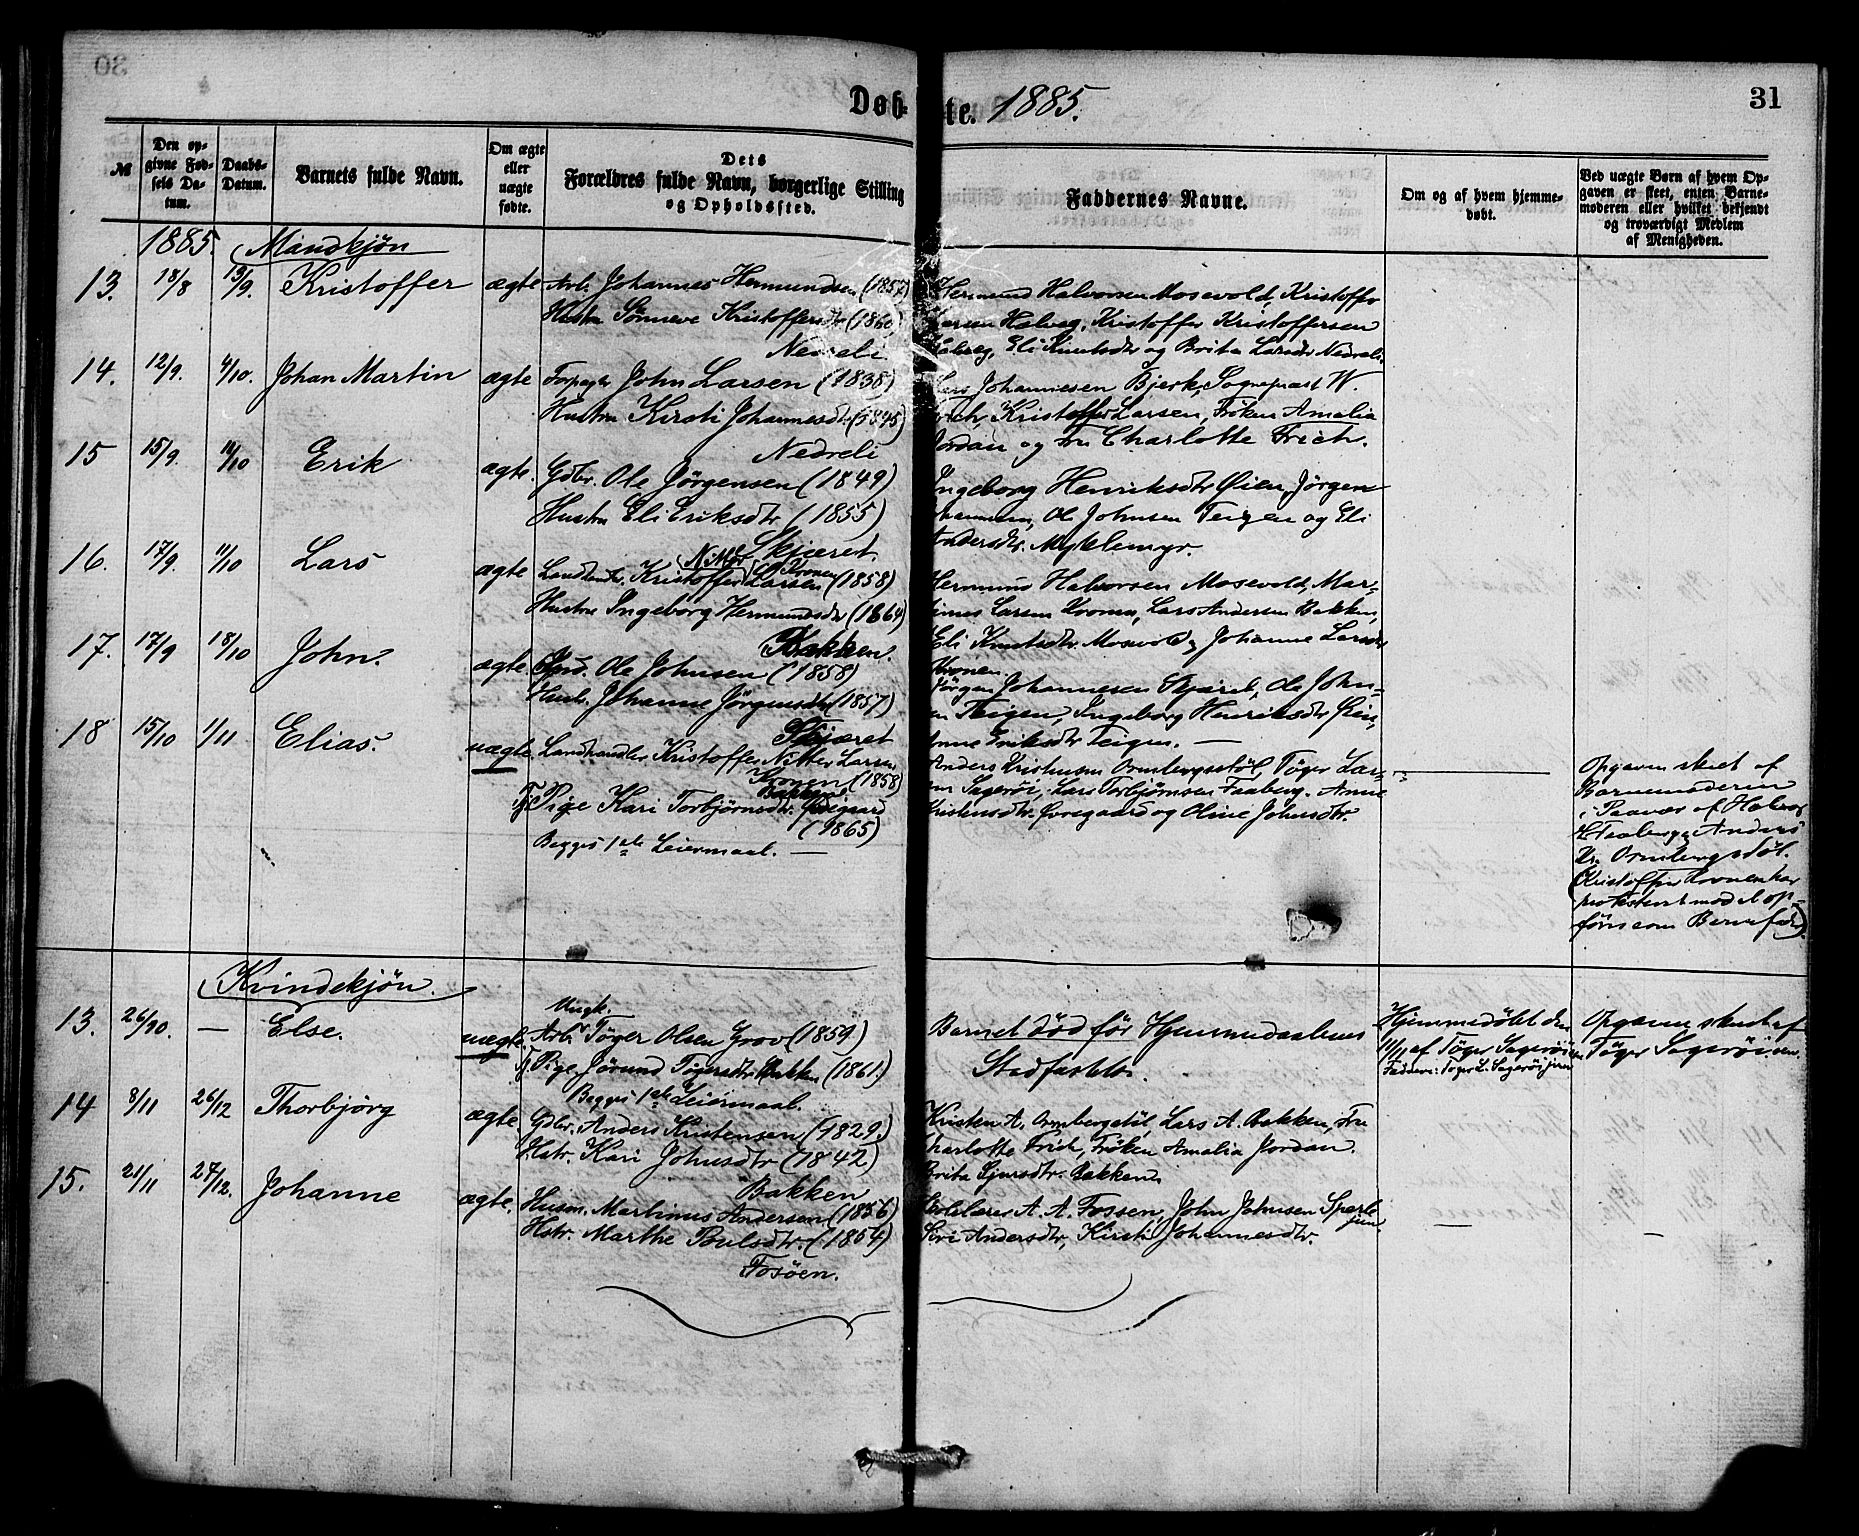 30
Døbte. 1885.
31
№
Den opgivne Fødsels Datum.
Daabs-Datum.
Barnets fulde Navn.
Om ægte eller uægte fødte.
Dets Forældres fulde Navn, borgerlige Stilling og Opholdssted.
Faddernes Navne.
Om og af hvem hjemmedøbt.
Ved uægte Børn af hvem Opgaven er skeet, enten Barnemoderen eller hvilket bekjendt og troværdigt Medlem af Menigheden.
1885. Mandkjøn
13. 18/8 13/9. Kristoffer ægte Arb. Johannes Hermundsen (1857)
Hustru Sønneve Kristoffersdtr (1860)
Nedreli
Hermund Halvorsen Mosevold, Kristoffer
Larsen Halveg, Kristoffer Kristoffersen
Eli Knutsdtr og Brita Larsdtr Nedreli.
14. 12/9. 4/10. Johan Martin ægte Forpagter John Larsen (1838)
Hustru Kirsti Johannesdtr (1845)
Nedreli
Lars Johannesen Bjerk, Sognepræst W.
Frich, Kristoffer Larsen, Frøken Amalia
Jordan og Fru Charlotte Frich.
15 15/9. 11/10 Erik ægte. Gdbr. Ole Jørgensen (1849)
Hustru Eli Eriksdtr (1855)
Skjæret.
Ingeborg Henriksdtr Øien, Jørgen
Johannesen, Ole Johnsen Teigen og Eli
Andersdtr. Myklemyr.
16. 17/9. 11/10 Lars ægte Landhandl. Kristoffer Nitter Larsen Kronen (1858)
Hustru Ingeborg Hermundsdtr (1864)
Bakken.
Hermund Halvorsen Mosevold, Mar-
tinus Larsen Kronen, Lars Andersen Bakken,
Eli Knutsdtr Mosevold og Johanne Larsdtr
Kronen.
17. 17/9 18/10 John. ægte Ole Johnsen (1858)
Johanne Jørgensdtr (1857)
Skjæret
Jørgen Johannesen Skjæret, Ole John-
sen Teigen, Ingeborg Henriksdtr Øien,
Anne Eriksdtr Teigen. —
18 15/10 1/11 Elias. uægte. Landhandler Kristoffer Nitter Larsen
Kronen (1858)
Pige Kari Torbjørnsdtr. Bakken
(1865)
Begges 1ste Leiermaal. —
Anders Kristensen Ormbergstøl, Tøger Lar-
sen Sagerøi, Lars Torbjørnsen Faaberg, Anne
Kristensdtr. Øvregaard og Oline Johnsdtr.
Opgaven skeet af
Barnemoderen
i Nærvær af Halvor
L. Faaberg og Anders
Kr. Ormbergstøl.
(Kristoffer Kronen har
protesteret mod at op-
føres som Barnefader).
Kvindekjøn.
13. 26/10. — Else. uægte. Ungk.
Arb. Tøger Olsen Grov (1859)
Pige Jørund Tøgersdtr Bakken (1861.)
Begges 1ste Leiermaal.
Barnet død før Hjemmedaabens
Stadfæstelse.
Hjemmedøbt den
11/11 af Tøger Sagerøien
Faddere: Tøger L. Sagerøijen
Opgaven skeet af
Tøger Sagerøien.
14 8/11 26/12 Thorbjørg ægte. Gdbr. Anders Kristensen (1829.)
Hstr. Kari Johnsdtr (1842)
Bakken
Kristen A. Ormbergstøl, Lars A. Bakken, Fru
Charlotte Frich, Frøken Amalia Jordan.
Brita Sjursdtr. Bakken
15. 21/11 27/12. Johanne ægte. Husm. Martinus Andersen (1856)
Hstr. Marthe Poulsdtr. (1854)
Fosøen.
Skolelærer A. A. Fossen, John Johnsen Sperle
jun.
Siri Andersdtr, Kirsti Johannesdtr. — —